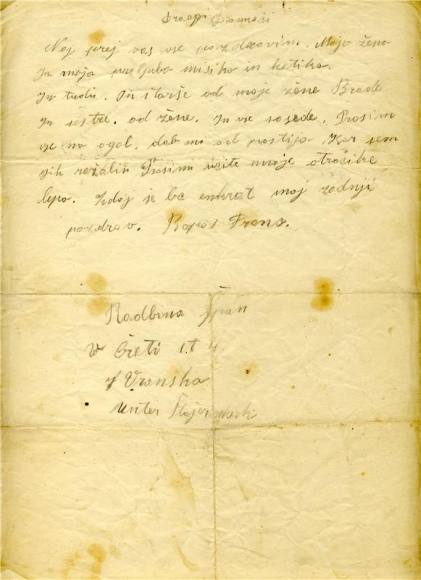 Dragi Domači
Naj prej vas vse pozdravim. Mojo ženo
In moja preljuba mišiko in ketiko.
In tudi. In starše od moje žene Brade
In sestre. od žene. In vse sosede. Prosim
vse na ogal. dab mi od prostija. Kar sem
jih režalin Prosimi učite moje otročiče
lepo. Zdaj je ba emrat moj zadnji
pozdrav. Franz.
Radbina Špan
v Čreti št 4.
p Vransko
Unter